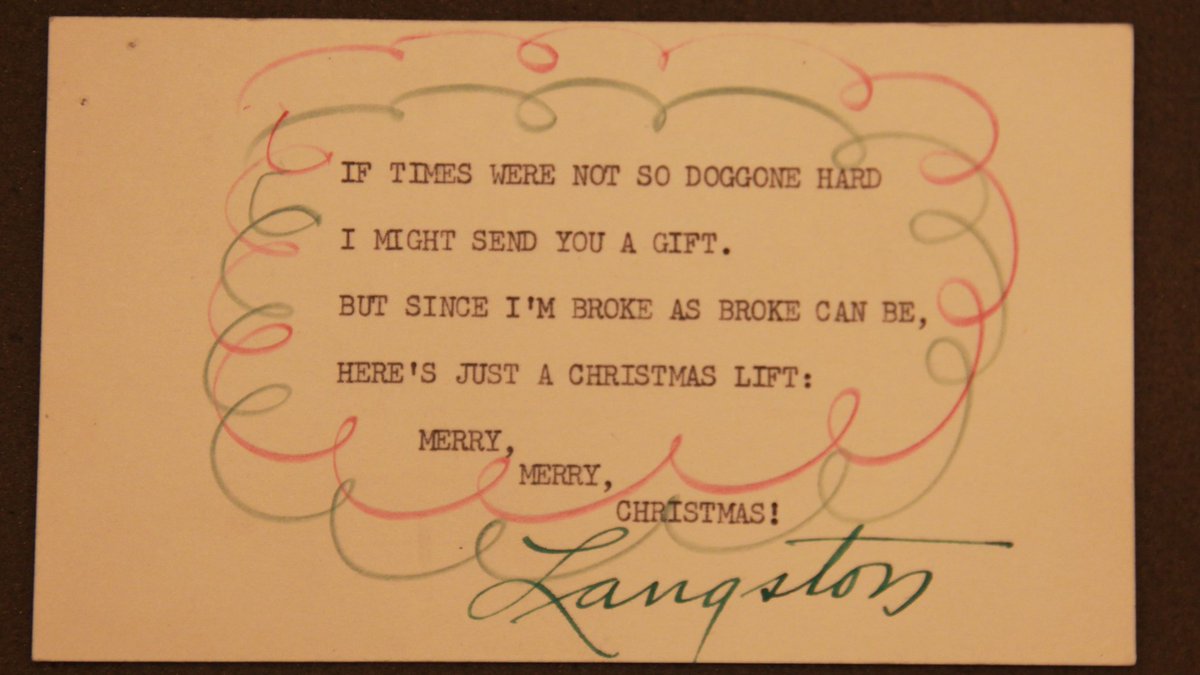 IF TIMES WERE NOT SO DOGGONE HARD
I MIGHT SEND YOU A GIFT.
BUT SINCE I'M BROKE AS BROKE CAN BE,
HERE'S JUST A CHRISTMAS LIFT:
MERRY,
MERRY,
CHRISTMAS!
Langston